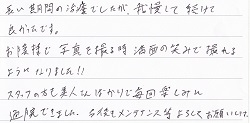 長い期間の治療でしたが、我慢して続けて
良かったです。
お陰様で写真を撮る時満面の笑みで撮れる
ようになりました!!
スタッフの方も美人さんばかりで毎回楽しみに
通院できました。今後もメンテナンス等よろしくお願いします